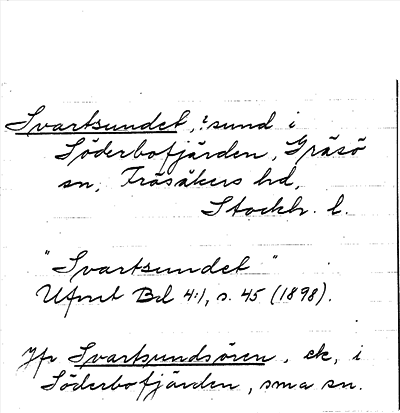 Svartsundet, ? sund i
Söderbofjärden, Gräsö
sn, Frösåkers hd,
Stockh. l.
"Svartsundet"
Ufmt Bd 4:1, s. 45 (1898).
Jfr Svartsundsören, ek, i
Söderbofjärden, sma sn.